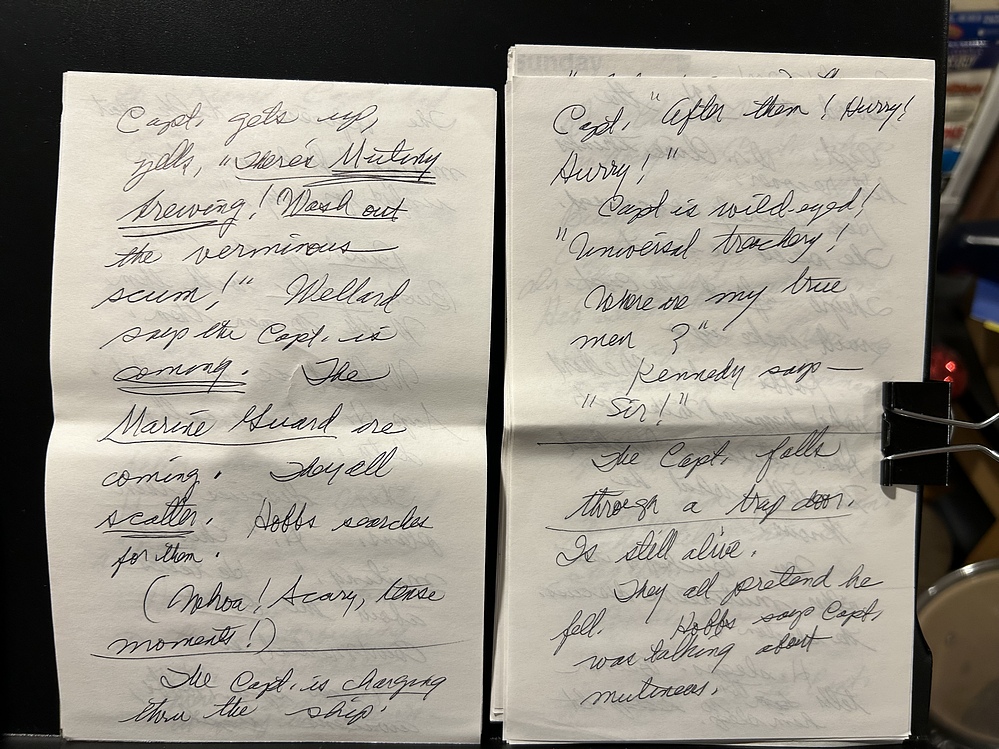 Capt. gets up,
yells, "There's Mutiny
brewing! Wash out
the verminous
scum!" Wellard
says the Capt. is
coming. The
Marine Guard are
coming. They all
scatter. Hobbs searches
for them.
(Whoa! Scary, tense
moments!)
The Capt. is charging
thru the ship.
Capt. "After them! Hurry!
Hurry!"
Capt is wild-eyed!
"Universal treachery!
Where are my true
men?"
Kennedy says—
"Sir!"
The Capt. falls
through a trap door.
Is still alive.
They all pretend he
fell. Hobbs says Capt.
was talking about
mutineers.